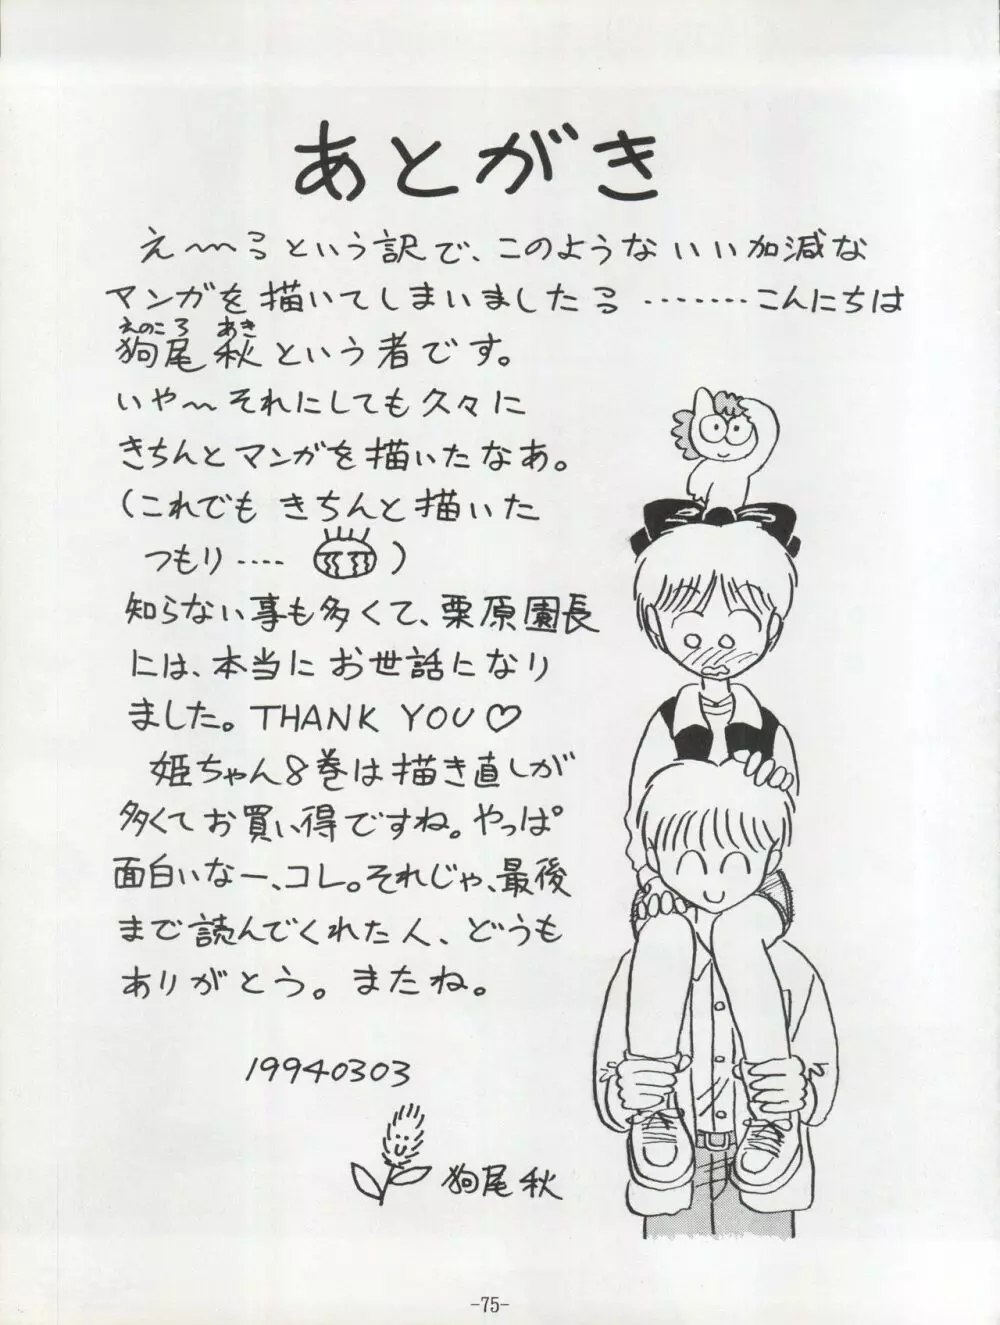 あとがき
え〜〜っという訳で、このようないい加減な
マンガを描いてしまいましたっ‥‥‥‥こんにちは
えのころ あき
狗尾 秋という者です。
いや〜それにしても久々に
きちんとマンガを描いたなあ。
(これでもきちんと描いた
つもり‥‥ )
知らない事も多くて、栗原園長
には、本当にお世話になり
ました。THANK YOU♡
姫ちゃん8巻は描き直しが
多くてお買い得ですね。やっぱ
面白いなー、コレ。それじゃ、最後
まで読んでくれた人、どうも
ありがとう。またね。
19940303
狗尾 秋
-75-